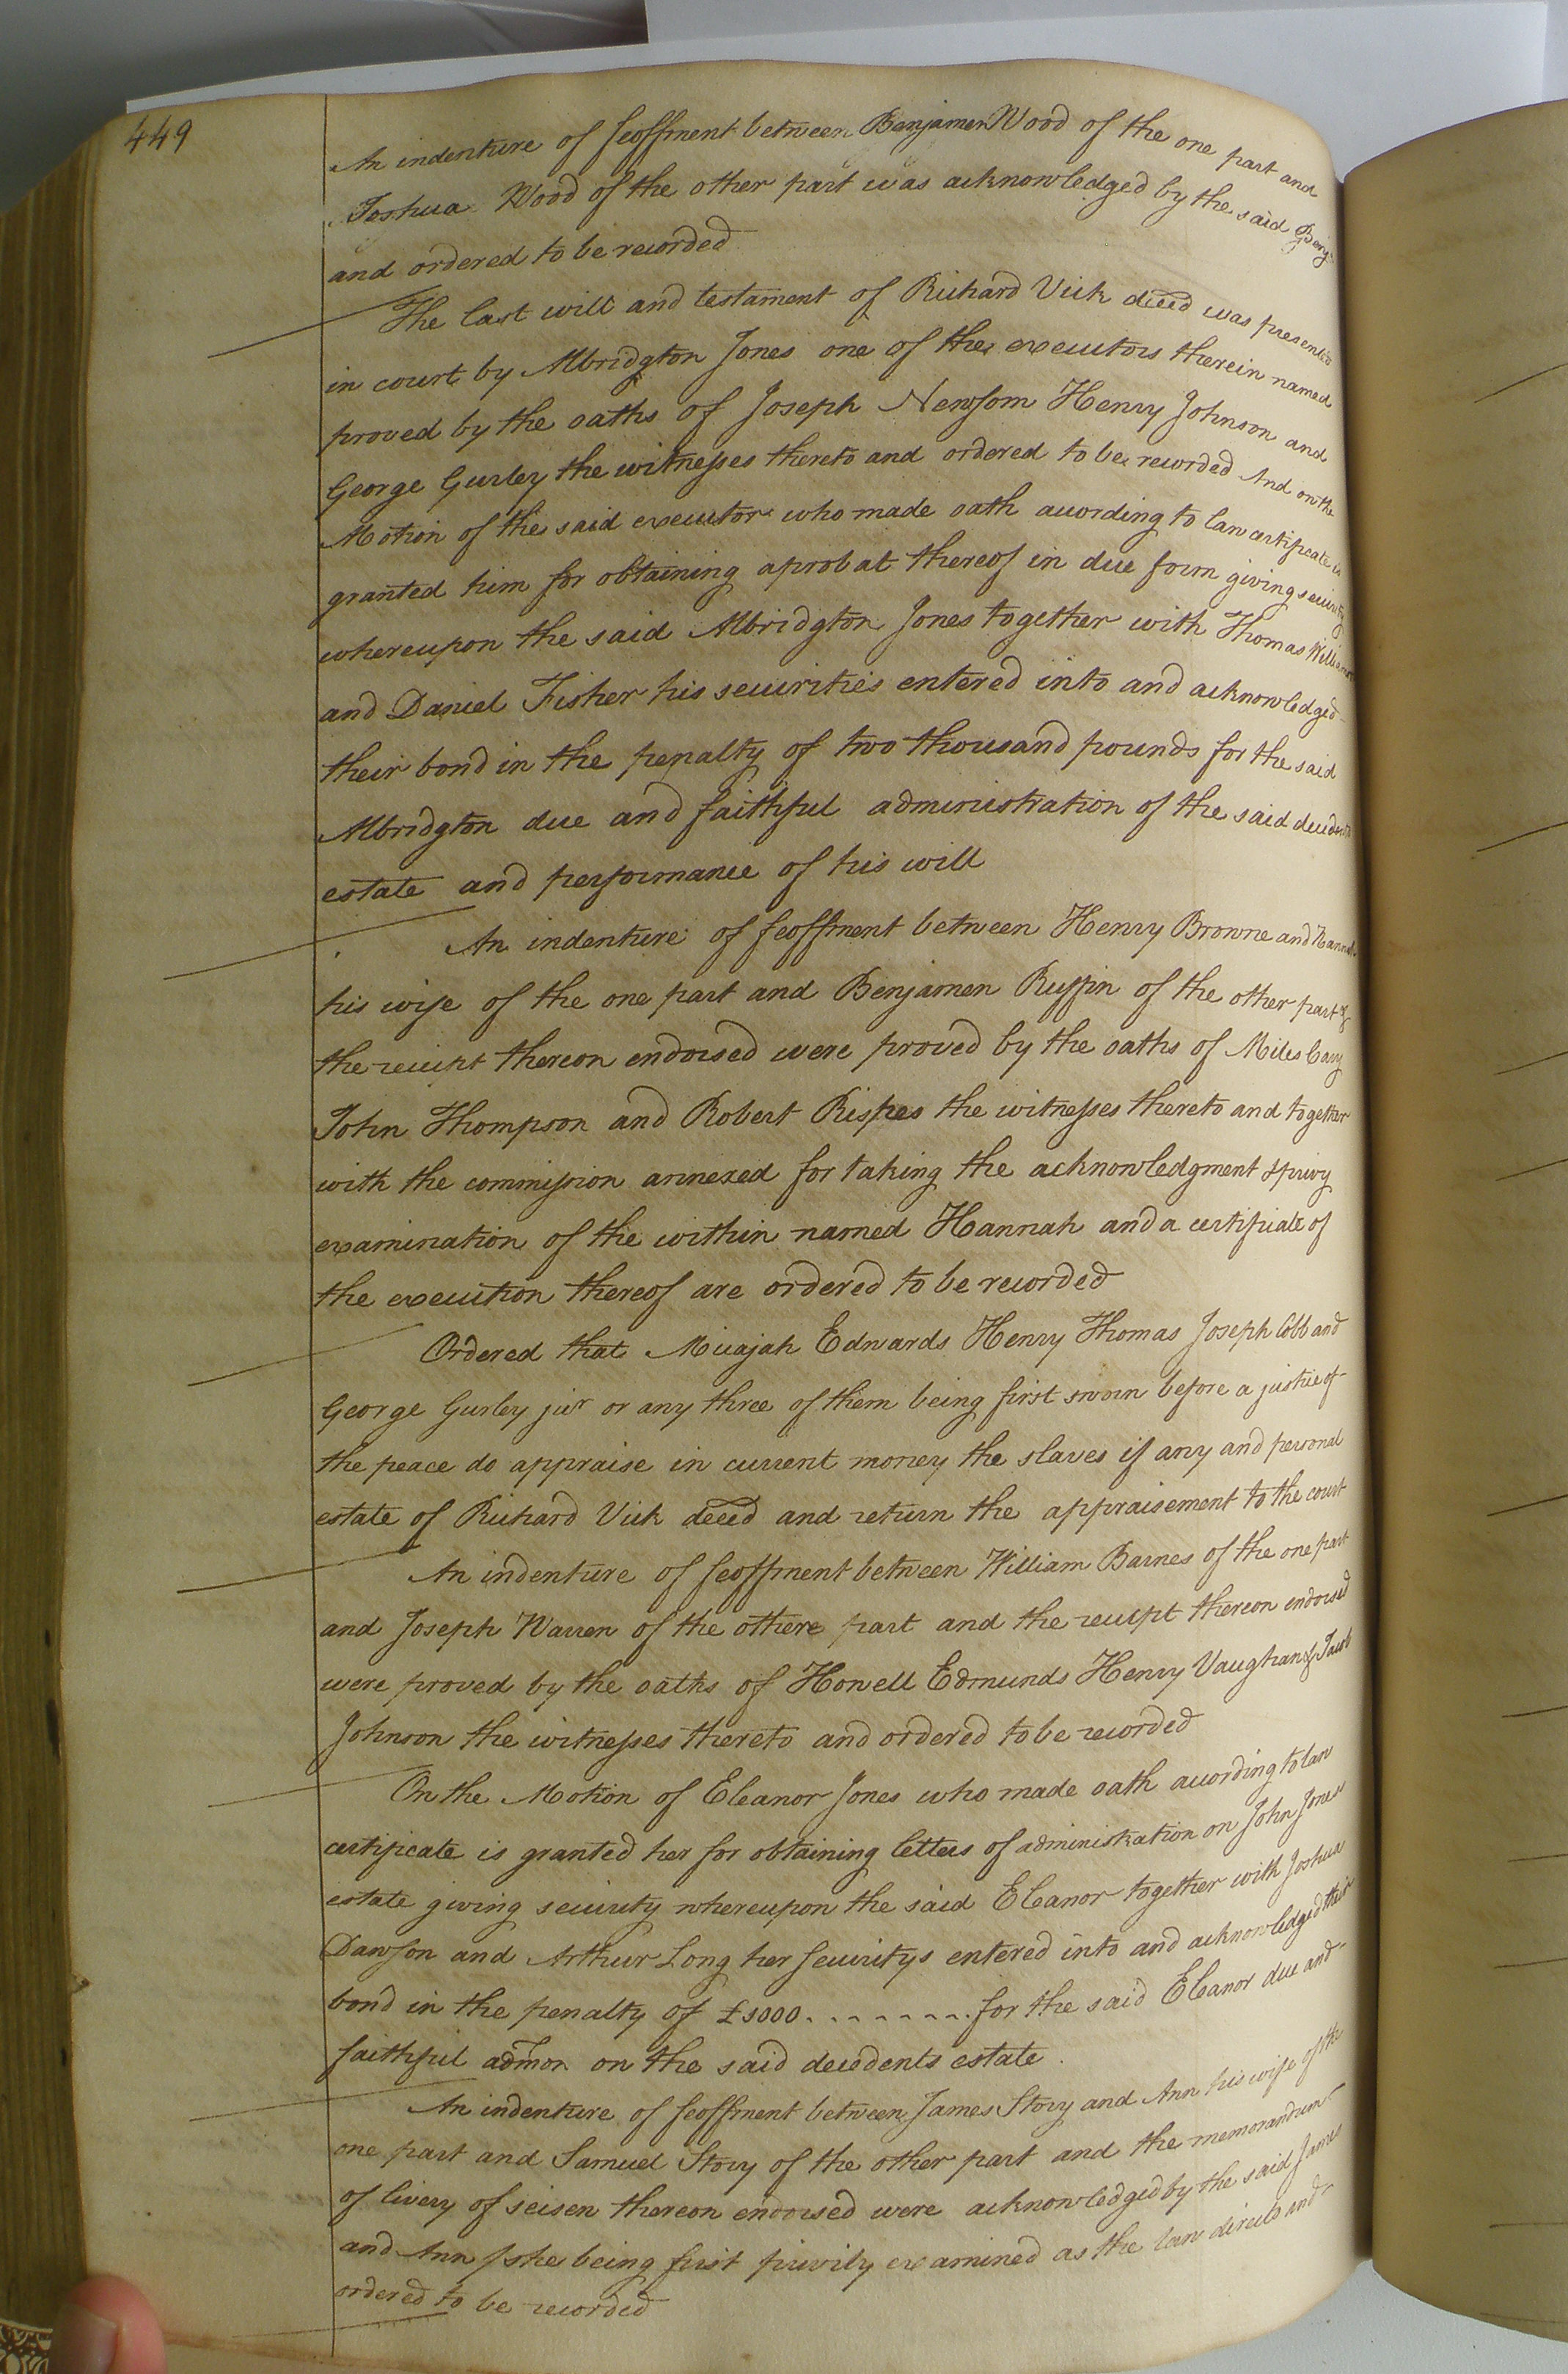 449
An indenture of feoffment between Benjamen Wood of the one part and
Joshua Wood of the other part was acknowledged by the said Benj
and ordered to be recorded
The last will and testament of Richard Vick deced was presented
in court by Albridgton Jones one of the executors therein named
proved by the oaths of Joseph Newsom Henry Johnson and
George Gurley the witnesses thereto and ordered to be recorded And on the
Motion of the said executor who made oath according to law certificate is
granted him for obtaining a probat thereof in due form giving security
whereupon the said Albridgton Jones together with Thomas Williamson
and Daniel Fisher his securities entered into and acknowledged
their bond in the penalty of two thousand pounds for the said
Albridgton due and faithful administration of the said decedents
estate and performance of his will
An indenture of feoffment between Henry Browne and Hannah
his wife of the one part and Benjamen Ruffin of the other part &
the receipt thereon endorsed were proved by the oaths of Miles Cary
John Thompson and Robert Rispes the witnesses thereto and together
with the commission annexed for taking the acknowledgment & privy
examination of the within named Hannah and a certificate of
the execution thereof are ordered to be recorded
Ordered that Micajah Edwards Henry Thomas Joseph Cobb and
George Gurley junr or any three of them being first sworn before a justice of
the peace do appraise in current money the slaves if any and personal
estate of Richard Vick deced and return the appraisement to the court
An indenture of feoffment between William Barnes of the one part
and Joseph Warren of the othere part and the receipt thereon endorsed
were proved by the oaths of Howell Edmunds Henry Vaughan & Jacob
Johnson the witnesses thereto and ordered to be recorded
On the Motion of Eleanor Jones who made oath according to law
certificate is granted her for obtaining letters of administration on John Jones
estate giving security whereupon the said Eleanor together with Joshua
Dawson and Arthur Long her securitys entered into and acknowledged their
bond in the penalty of £1000 - - - - - - - for the said Eleanor due and
faithful admon on the said decedents estate
An indenture of feoffment between James Story and Ann his wife of the
one part and Samuel Story of the other part and the memorandum
of livery of seisen thereon endorsed were acknowledged by the said James
and Ann / she being first privily examined as the law directs and
ordered to be recorded